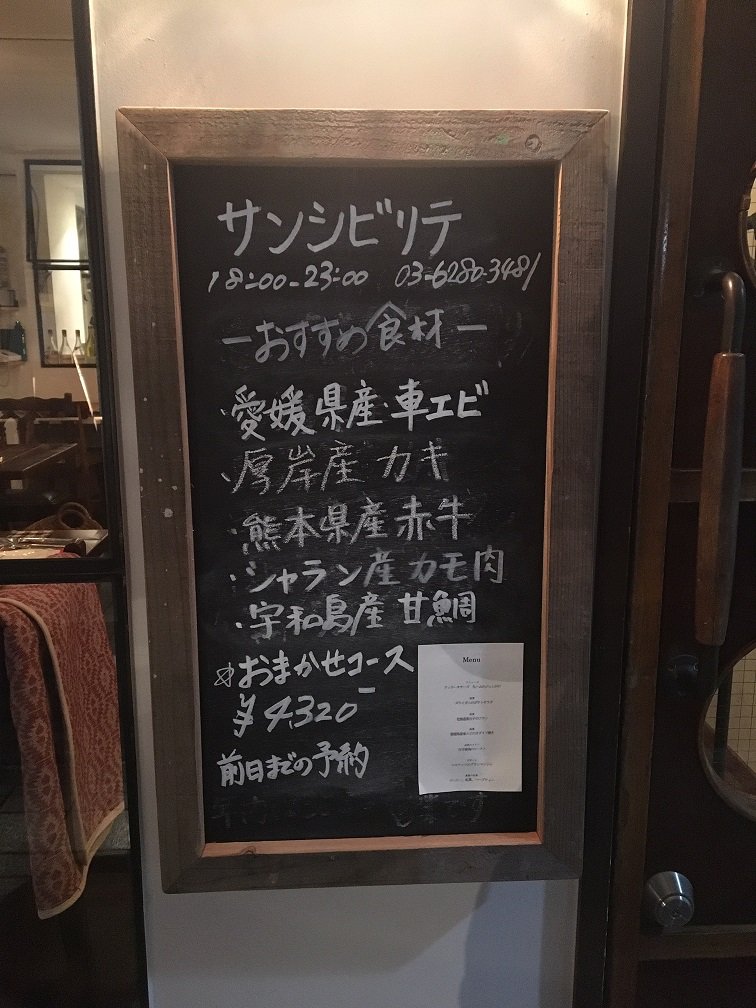 サンシビリテ
18:00-23:00 03-6280-3481
ーおすすめ食材ー
・愛媛県産・車エビ
・厚岸産 カキ
・熊本県産 赤牛
・シャラン産 カモ肉
・宇和島産 甘鯛
おまかせコース
¥4,320-
前日までの予約
Menu